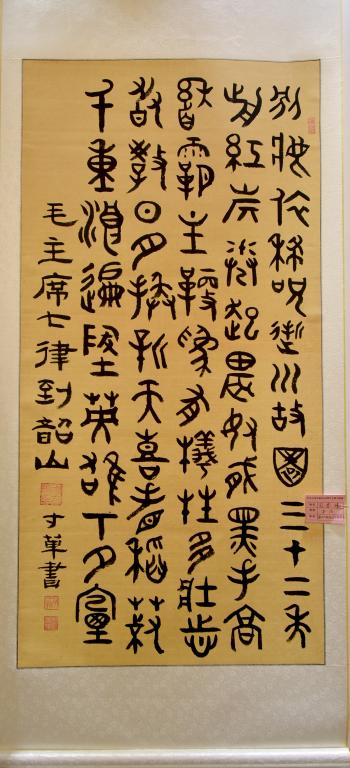 別夢依稀咒逝川故園三十二年
前紅旗捲起農奴戟黑手高
懸霸主鞭為有犧牲多壯志
敢教日月換新天喜看稻菽
千重浪遍地英雄下夕煙
毛主席七律到韶山
寸草書